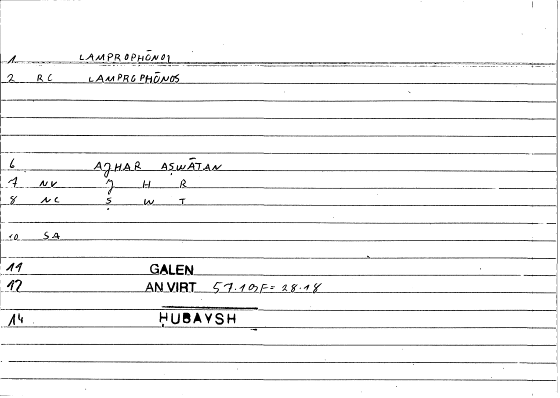 1 LAMPROPHŌNOI
2 RC LAMPROPHŌNOS
6 AJHAR AṢWĀTAN
7 NV J H R
8 NC Ṣ W T
10 SA
11 GALEN
12 AN VIRT
14 ḤUBAYSH